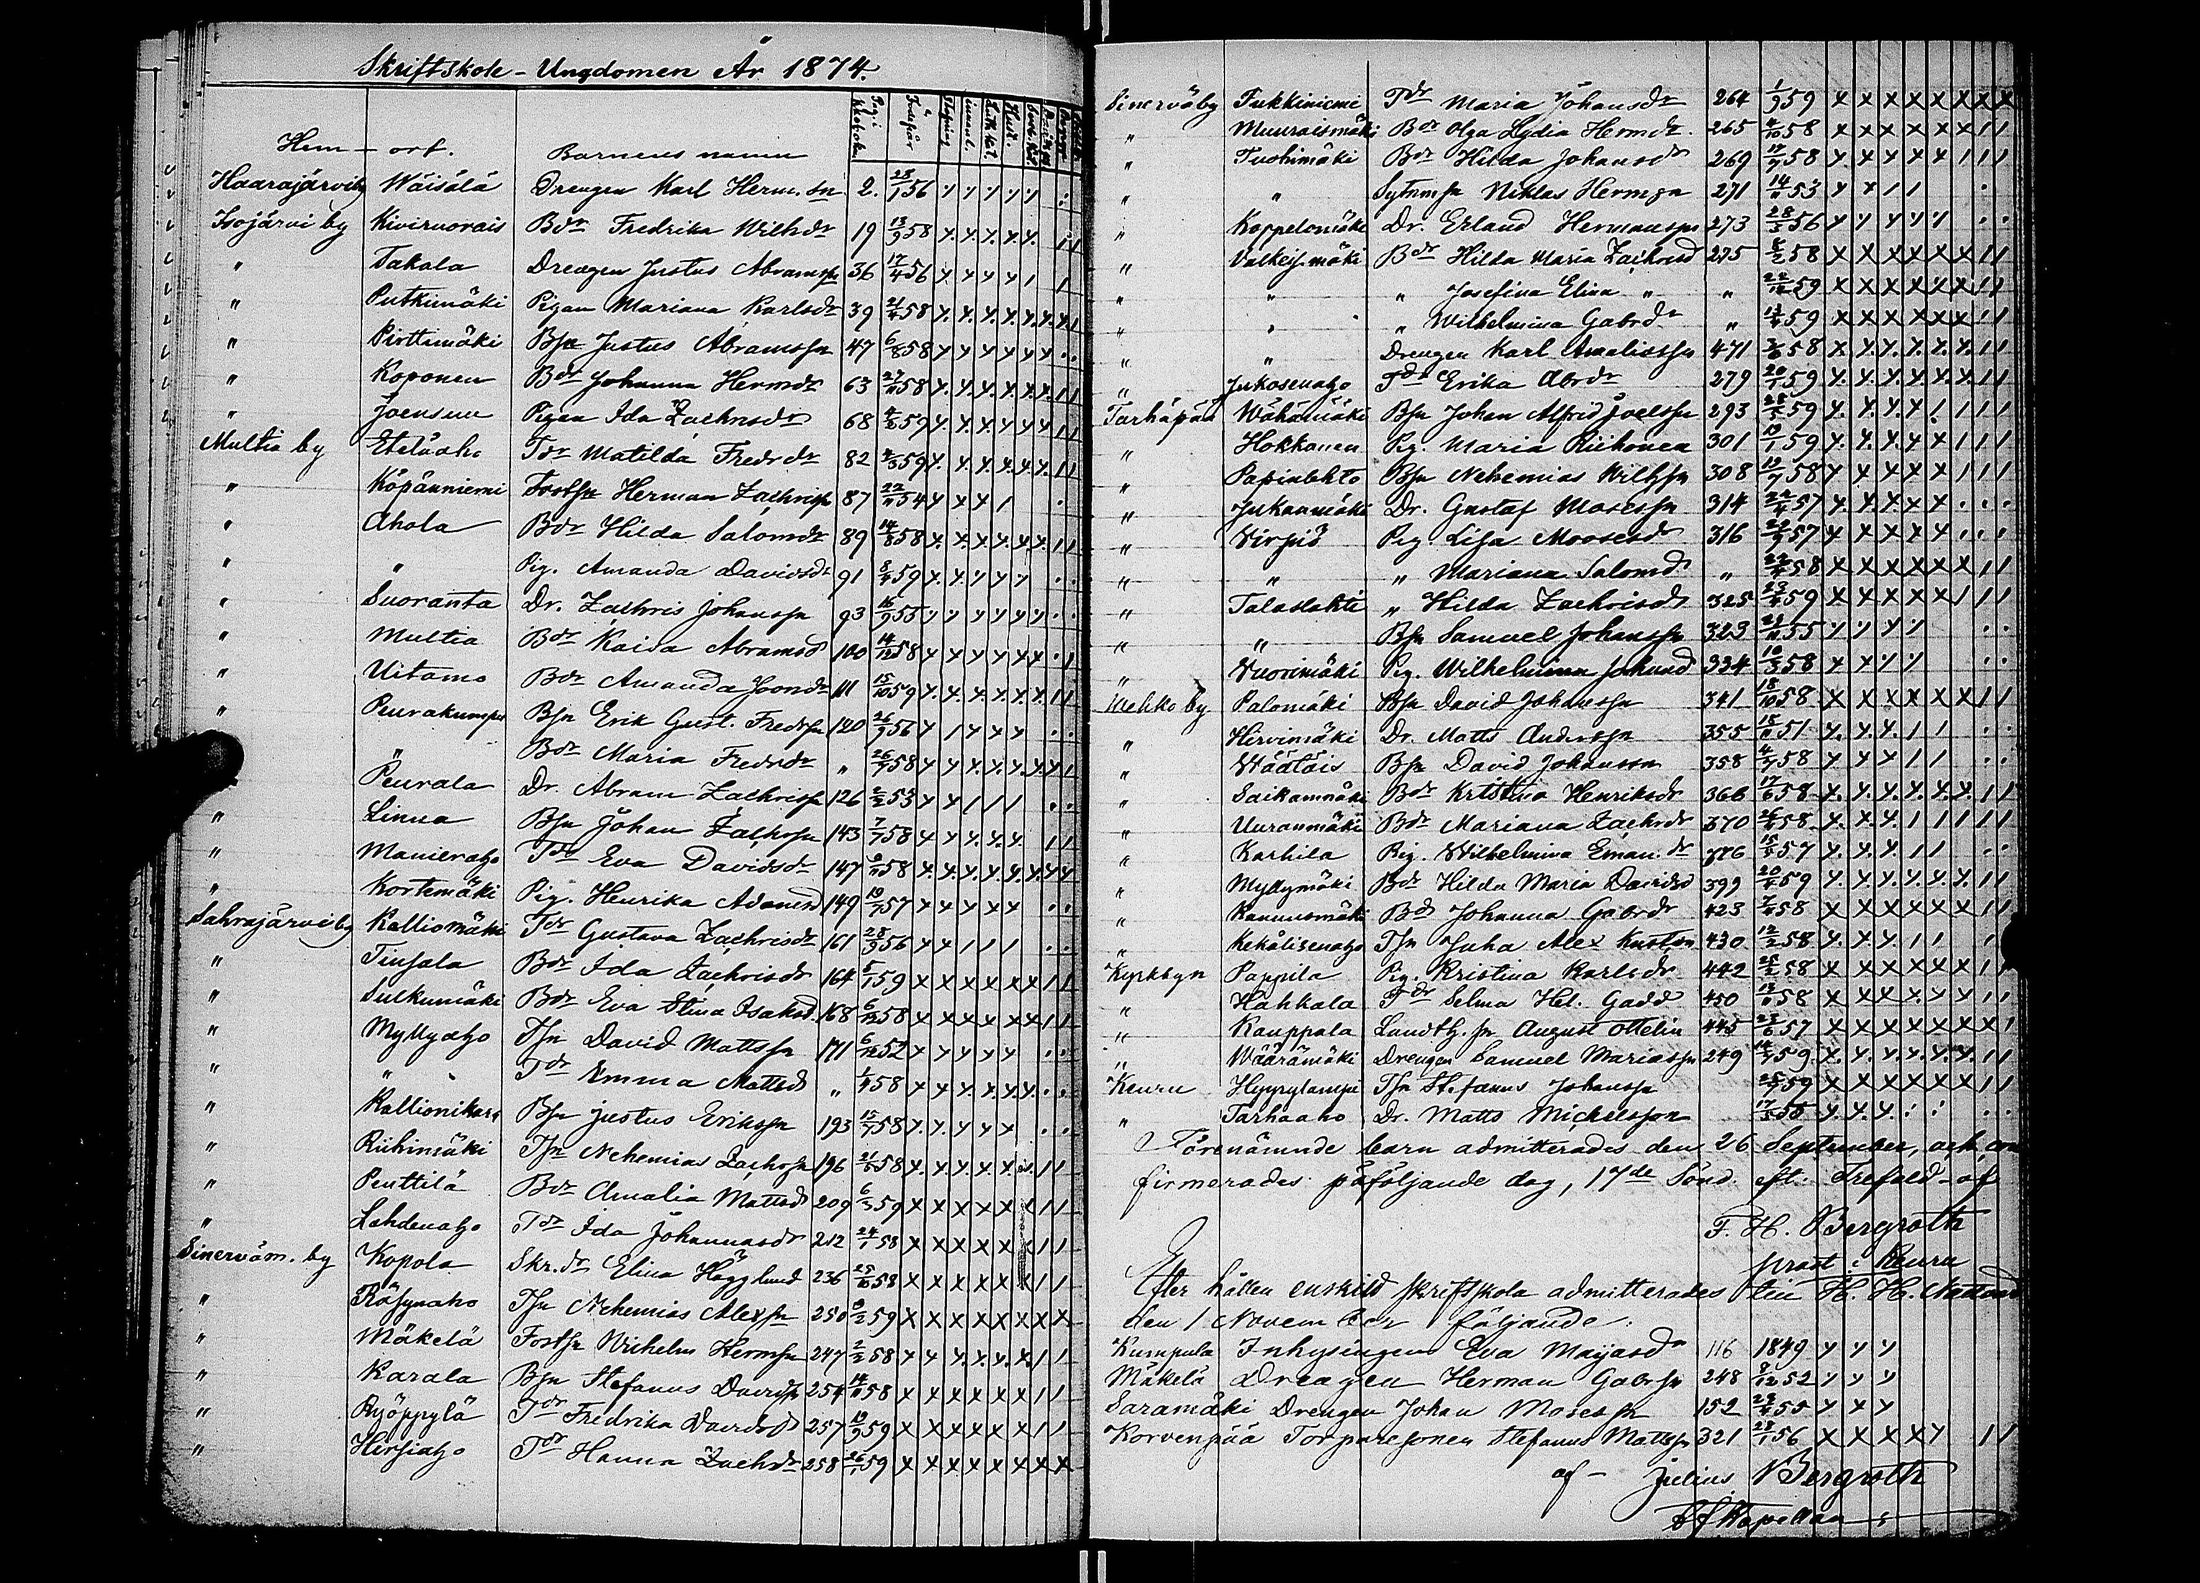 Skriftskole-Ungdomen År 1874.
Hem-ort. Barnens namn
Haarajärviby Wäisälä Drengen Karl Herm.sn 2. 28/1 56 y y y y y
Isojärvi by Kivirvorais Bdr Fredrika Wilhdr 19 13/9 58 x. x. x. x. x. 1 1
" Takala Drengen Justus Abramssn 36 17/4 56 x x x x 1 1
" Putkimäki Pigan Mariana Karlsdr 39 21/4 58 x. x. x. x. x. x. x. 1
" Pirttimäki Bsn Justus Abramssn 47 6/8 58 x x x x x x . .
" Koponen Bdr Johanna Hermdr 63 27/11 58 x. x. x. x. x. x. 1 1
" Joensuu Pigan Ida Zachrisdr 68 59 x x x x x x 1 1
Multia by Eteläaho Tdr Matilda Fredrdr 82 59 x. x. x. x. x. x. 1 1
" Köpänniemi Torfsn Herman Zachrissn 87 22/11 54 x x x x 1 .
" Ahola Bdr Hilda Salomdr 89 14/8 58 x. x. x. x. x. x. 1 1
" " Pig. Amanda Davidsdr 91 59 x. x. y x y . .
" Suoranta Dr. Zachris Johanssn 93 16/9 55 y y y y y y . .
" Multia Bdr Kaisa Abramsd 100 14/12 58 x x x x x x . 1
" Uitamo Bdr Amanda Joondr 111 15/10 59 x. x. x. x. x. x. 1 1
" Peurakumpu Bsn Erik Gust. Fredrssn 120 26/9 56 x 1 x x x . .
" Bdr Maria Fredrdr " 26/9 58 x x x. x. x. x. x 1
" Peurala Dr. Abram Zachrissn 126 2/2 53 x x 1 1 1 . .
" Linna Bsn Johan Zachrssn 143 7/7 58 x x x. x. x. 1 1
" Manieraho Tdr Eva Davidsdr 147 58 x. x. x. x. x. x. x x
" Kortemäki Pig. Henrika Adamsd 149 19/7 57 x x x x x . .
Sahrajärviby Kalliomäki Tdr Gustava Zachrisdr 161 28/9 56 x x 1 1 1 . .
" Tiusala Bdr Ida Zachrisdr 164 5/1 59 x x x x x x 1 1
" Sulkumäki Bdr Eva Stina Isaksd. 168 6/12 58 x x x x x x 1 1
" Myllyaho Tsn David Mattssn 171 6/12 52 x x x x x . .
" " Tdr Emma Mattsd " 58 x x x. x. x. x. . .
" Kallionikara Bsn Justus Erikssn 193 15/7 58 x. x. x x x . .
" Riihimäki Tsn Nehemias Zachrssn 196 21/5 58 x. x. x. x. x. 1 1
" Penttilä Bdr Amalia Mattsd 209 6/3 59 x x x x x 1 1
" Lehdenaho Tdr Ida Johannasdr 212 24/1 58 x x x x x 1 1
Sinerväm. by Kopola Skr.dr Elina Högglund 236 25/10 58 x x x x x x 1 1
" Räsynaho Tsn Nehemias Alexsn 250 59 x x x x x x x x
" Mäkelä Torfsn Wilhelm Hermssn 247 2/2 58 x x x. x. x. x. 1 1
" Karala Bsn Stefanus Davidssn 254 14/11 58 x x x x x x 1 1
" Ryöppylä Tdr Fredrika Davidsd 257 19/9 59 x x x x x x 1 1
" Hirsiaho Tdr Hanna Zachrdr 258 26/1 59 x x x x x x x x
Sinerväby Tukkiniemi Tdr Maria Johansdr 264 1/9 59 x x x x x x x x
" Muuraismäki Bdr Olga Lydia Hermdr. 265 4/10 58 x x x x x x 1 1
" Tuohimäki Bdr Hilda Johansdr 269 17/9 58 x. x x x x 1 1 1
" " Sytnmsn Niklas Hermssn 271 14/11 53 x x 1 1 .
" Koppelomäki Dr. Erland Hermanssn 273 28/5 56 x y x y y . .
" Valkeis.mäki Bdr Hilda Maria Zachrisd 275 6/2 58 x x x x x x 1 1
" " " Josefina Elina " " 22/12 59 x x x x x x 1 1
" " " Wilhelmina Gabrdr " 13/4 59 x x x x x x 1 1
" " Drengen Karl Amaliassn 471 58 x x. x. x. x. x. 1 1
" Jukosenaho Tdr Erika Abrdr 279 20/1 59 x. x. x. x. x. x. 1 1
Tarhapää Wähämäki Bsn Johan Alfrid Joelssn 293 28/5 59 x. x. x. x 1 1 1 1
" Hokkanen Pig. Maria Riihonen 301 19/1 59 x. x. x. x. x 1 1 1
" Papinlehto Bsn Nehemias Wilhssn 308 19/7 58 x x x x x 1 1 1
" Jukanmäki Dr. Gustaf Mosessn 314 57 x x x x x . . .
" Virpiö Pig. Lisa Moosesdr 316 57 x x x x x . . .
" " " Mariana Salomd " 22/4 58 x x x x x x 1 1
" Talaslahti " Hilda Zachrisdr 325 23/4 59 x x x x x 1 1 1
" " Bsn Samuel Johanssn 323 29/11 55 y y x y . .
" Vuorimäki Pig. Wilhelmina Johansd 334 10/3 58 x x y y . .
Wehko by Palomäki Bsn David Johanssn 341 18/10 58 x x x x x x 1 1
" Hirvimäki Dr. Matts Anderssn 355 15/11 51 x. x. x. 1 1 . .
" Wäätäis Bsn David Johansson 358 4/7 58 x x x 1 1 . .
" Saikanmäki Bdr Kristina Henriksdr 366 17/6 58 x. x. x. x. x. x. 1 1
" Uuranmäki Bdr Mariana Zachrdr 370 58 x. x. x. 1 1 1 1 1
" Karhila Pig. Wilhelmina Eman.dr 376 15/5 57 x. x. x. 1 1 . .
" Myllymäki Bdr Hilda Maria Davidsd 399 20/1 59 x. x. x. x. x. x. 1 1
" Kanunsmäki Bdr Johanna Gabrdr 423 58 x x x x x x 1 1
" Kekälisenaho Tsn Juha Alex Kustsn 430 12/2 58 x. x x. 1 1 1
Kyrkbyn Pappila Pig. Kristina Karlsdr 442 25/2 58 x x x x x x 1 1
" Hahkala Tdr Selma Hel. Gadd 450 13/11 58 x x x x. x x 1 1
" Kauppala Landth.sn August Ottelin 445 23/6 57 x x x x x x x 1
" Wäärämäki Drengen Samuel Mariassn 249 14/7 59. x. x. x. x. x. x. 1 1
Keuru Hyppylampi Tsn Stefanus Johanssn 25/5 59 x x x x x x 1 1
" Tarhaaho Dr. Matts Mickelsson 17/5 55 x. x. x. : : . .
Förenämnde barn admitterades den 26 September, och con
firmerades påföljande dag, 17de Sönd. eft. Trefald- af
F. H. Bergroth
prost i Keuru
Efter hållen enskild skriftskola admitterades till H. H. Nattvard
den 1 November följande:
Kumpula Inhysingen Eva Mayasdr 116 1849 y y y
Mäkelä Drengen Herman Gabrssn 248 8/12 52 y y y
Saramäki Drengen Johan Mosessn 152 55 x x x
Korvenpää Torparesonen Stefanus Mattssn 321 28/1 56 x x x x x 1 1
af - Julius Bergroth
Kapellan